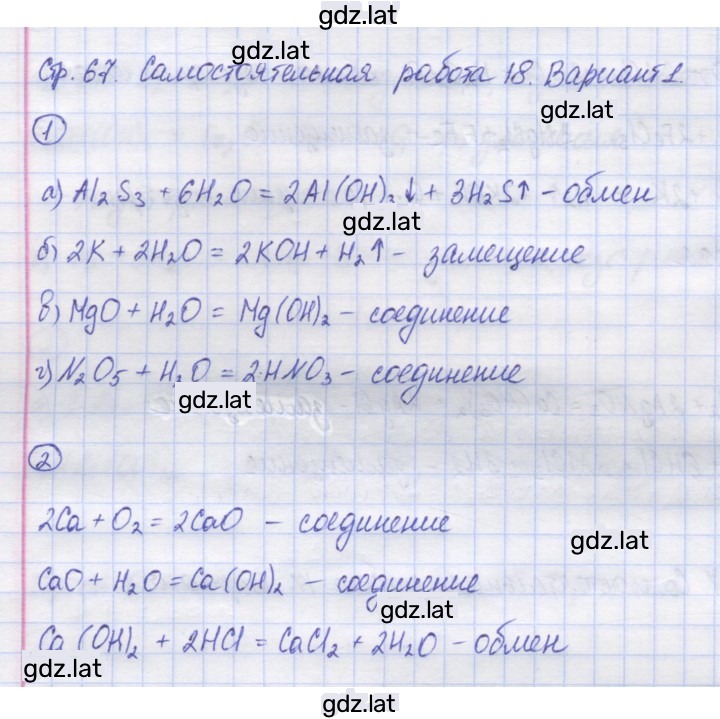 gdz.lat
gdz.lat
Стр. 67. Самостоятельная работа 18. Вариант 1.
gdz.lat
1
а) Al₂S₃ + 6H₂O = 2Al(OH)₃↓ + 3H₂S↑ – обмен
gdz.lat
б) 2K + 2H₂O = 2KOH + H₂↑ – замещение
в) MgO + H₂O = Mg(OH)₂ – соединение
г) N₂O₅ + H₂O = 2HNO₃ – соединение
gdz.lat
2
2Ca + O₂ = 2CaO – соединение
gdz.lat
CaO + H₂O = Ca(OH)₂ – соединение
gdz.lat
Ca(OH)₂ + 2HCl = CaCl₂ + 2H₂O – обмен
gdz.lat
gdz.lat